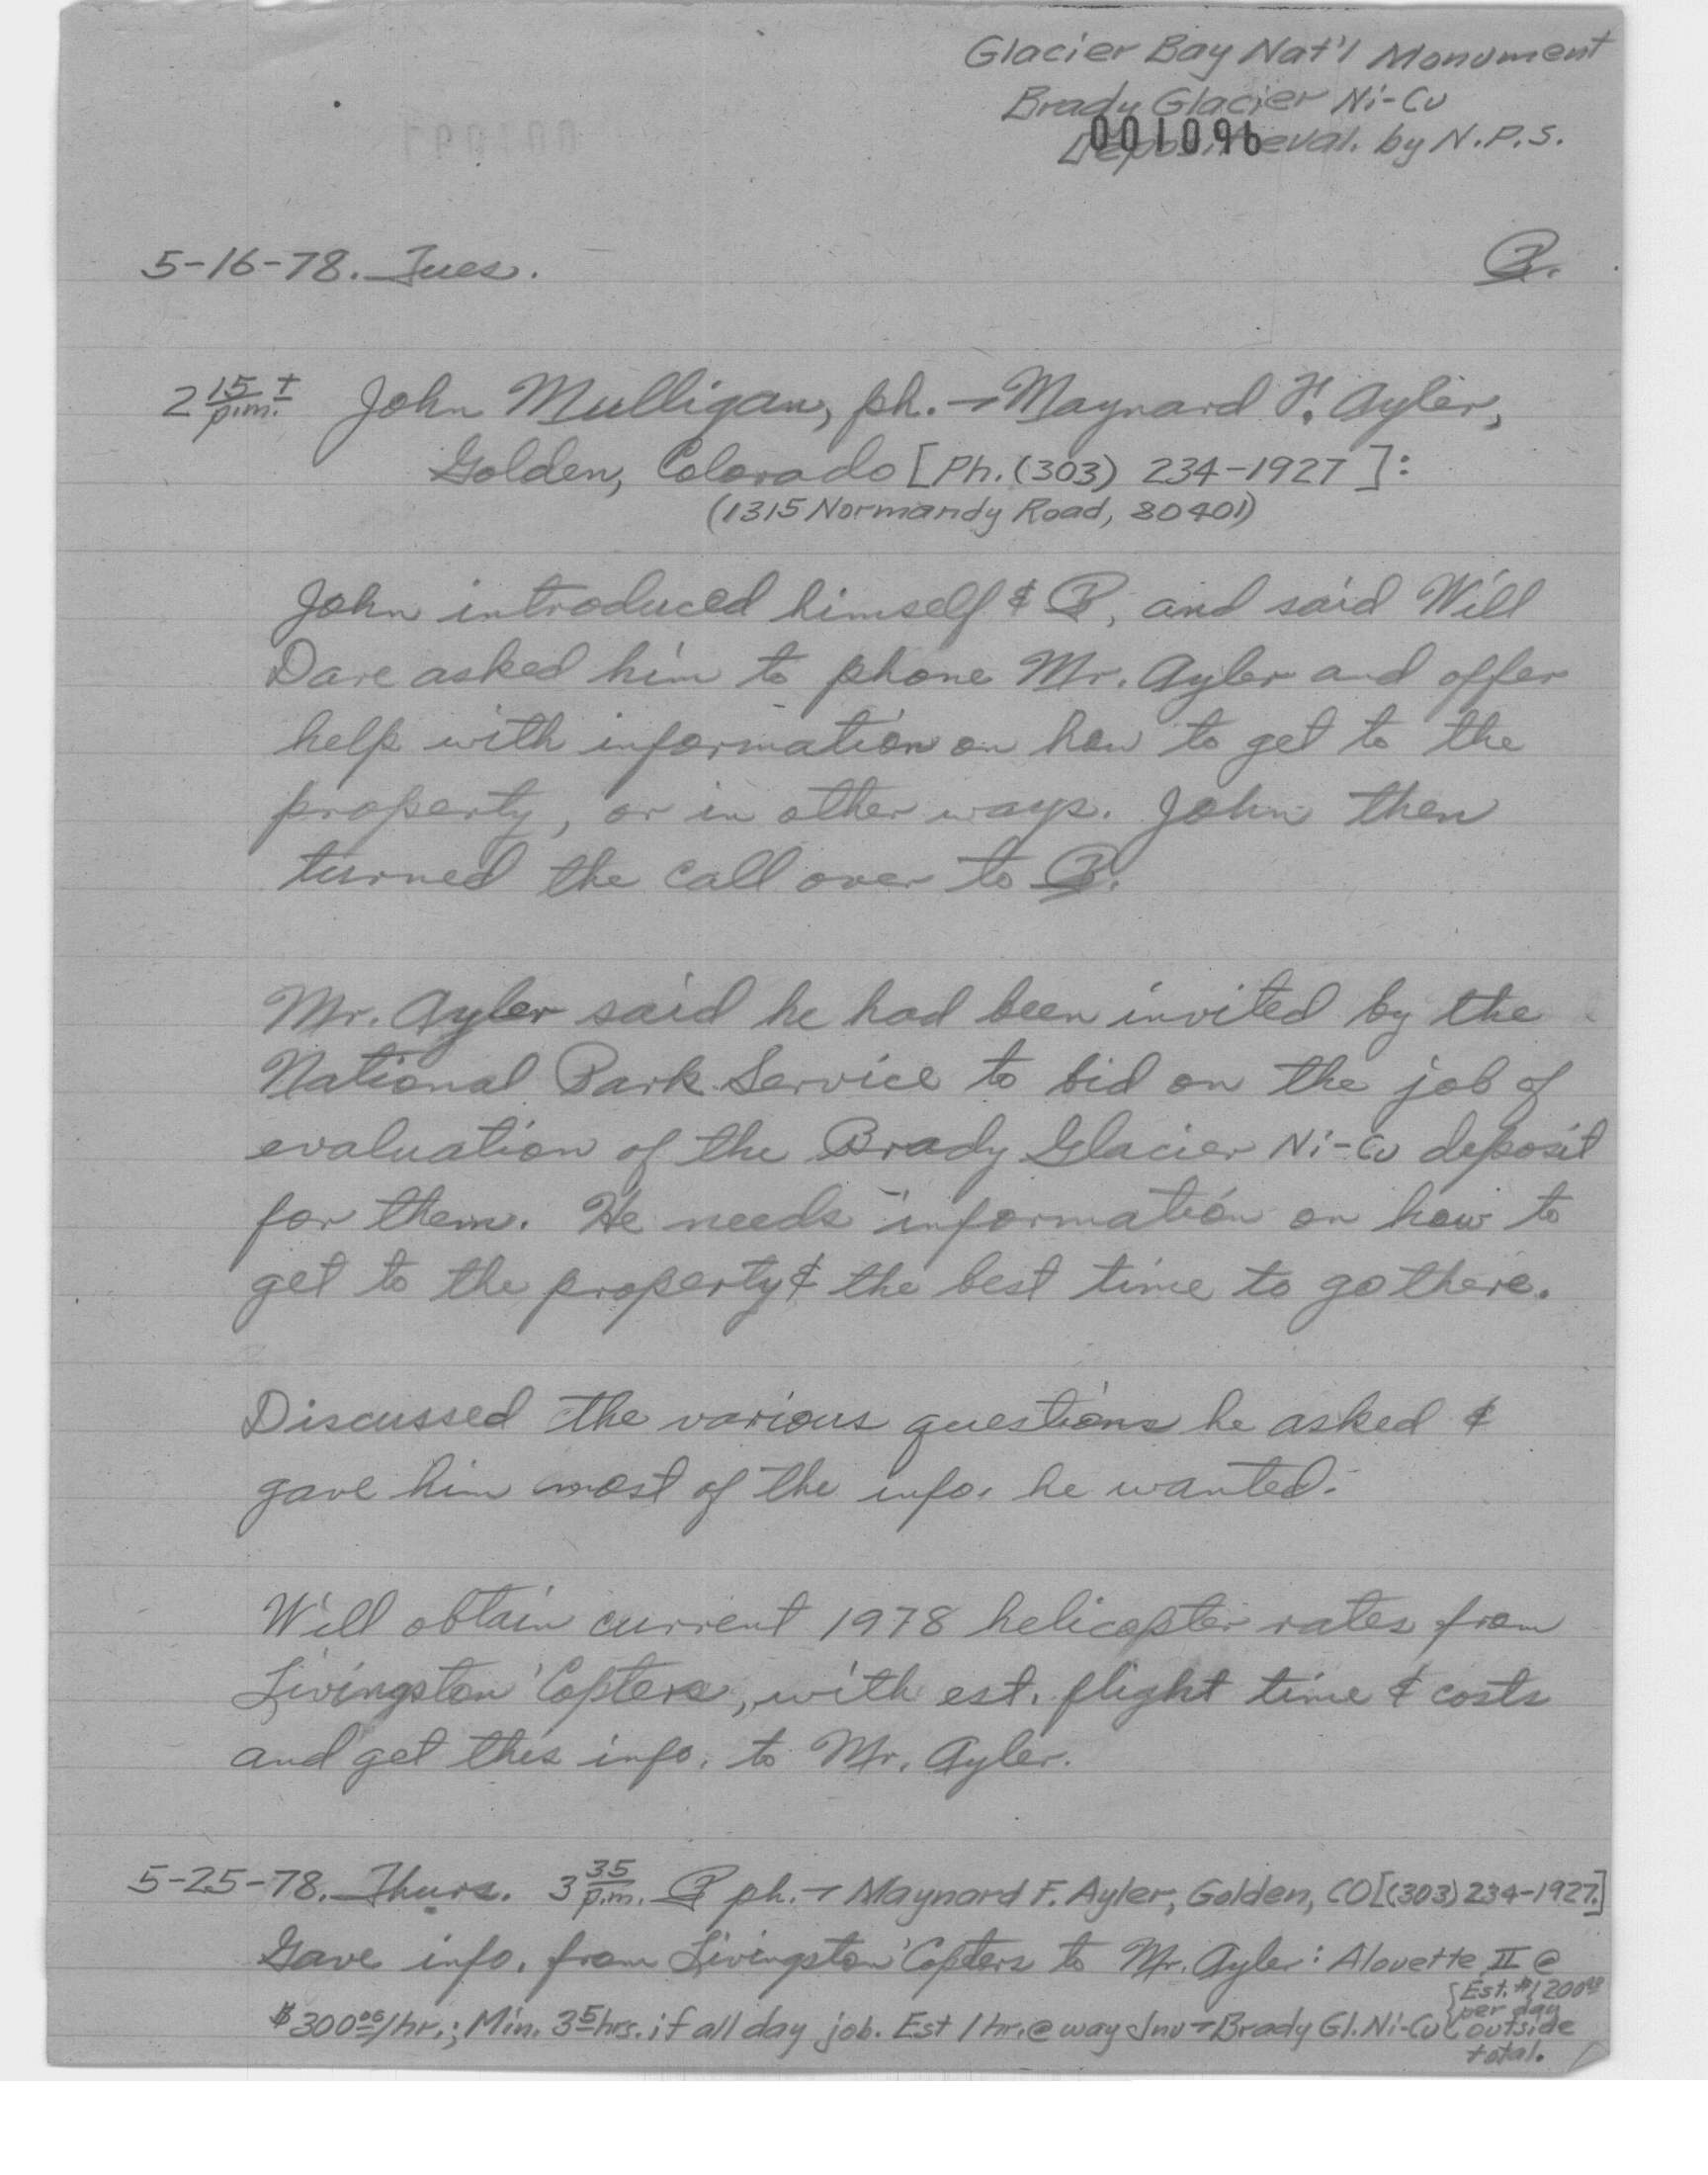 Glacier Bay Nat'l Monument
Brady Glacier Ni-Cu
Deposit eval. by N.P.S.
001096
5-16-78. Tues.
2 15 p.m.± John Mulligan, ph. → Maynard F. Ayler,
Golden, Colorado [Ph. (303) 234-1927]:
(1315 Normandy Road, 80401)
John introduced himself & B, and said Will
Dare asked him to phone Mr. Ayler and offer
help with information on how to get to the
property, or in other ways. John then
turned the call over to B.
Mr. Ayler said he had been invited by the
National Park Service to bid on the job of
evaluation of the Brady Glacier Ni-Cu deposit
for them. He needs information on how to
get to the property & the best time to go there.
Discussed the various questions he asked &
gave him most of the info. he wanted.
Will obtain current 1978 helicopter rates from
Livingston 'Copters, with est. flight time & costs
and get this info. to Mr. Ayler.
5-25-78. Thurs. 3 35 p.m. B ph. → Maynard F. Ayler, Golden, CO [(303) 234-1927.]
Gave info. from Livingston 'Copters to Mr. Ayler: Alouette II @
$300 00/hr.; Min. 3 5 hrs. if all day job. Est 1 hr. @ way Jnu → Brady Gl. Ni-Cu
{Est. $1200 00
per day
outside
total.